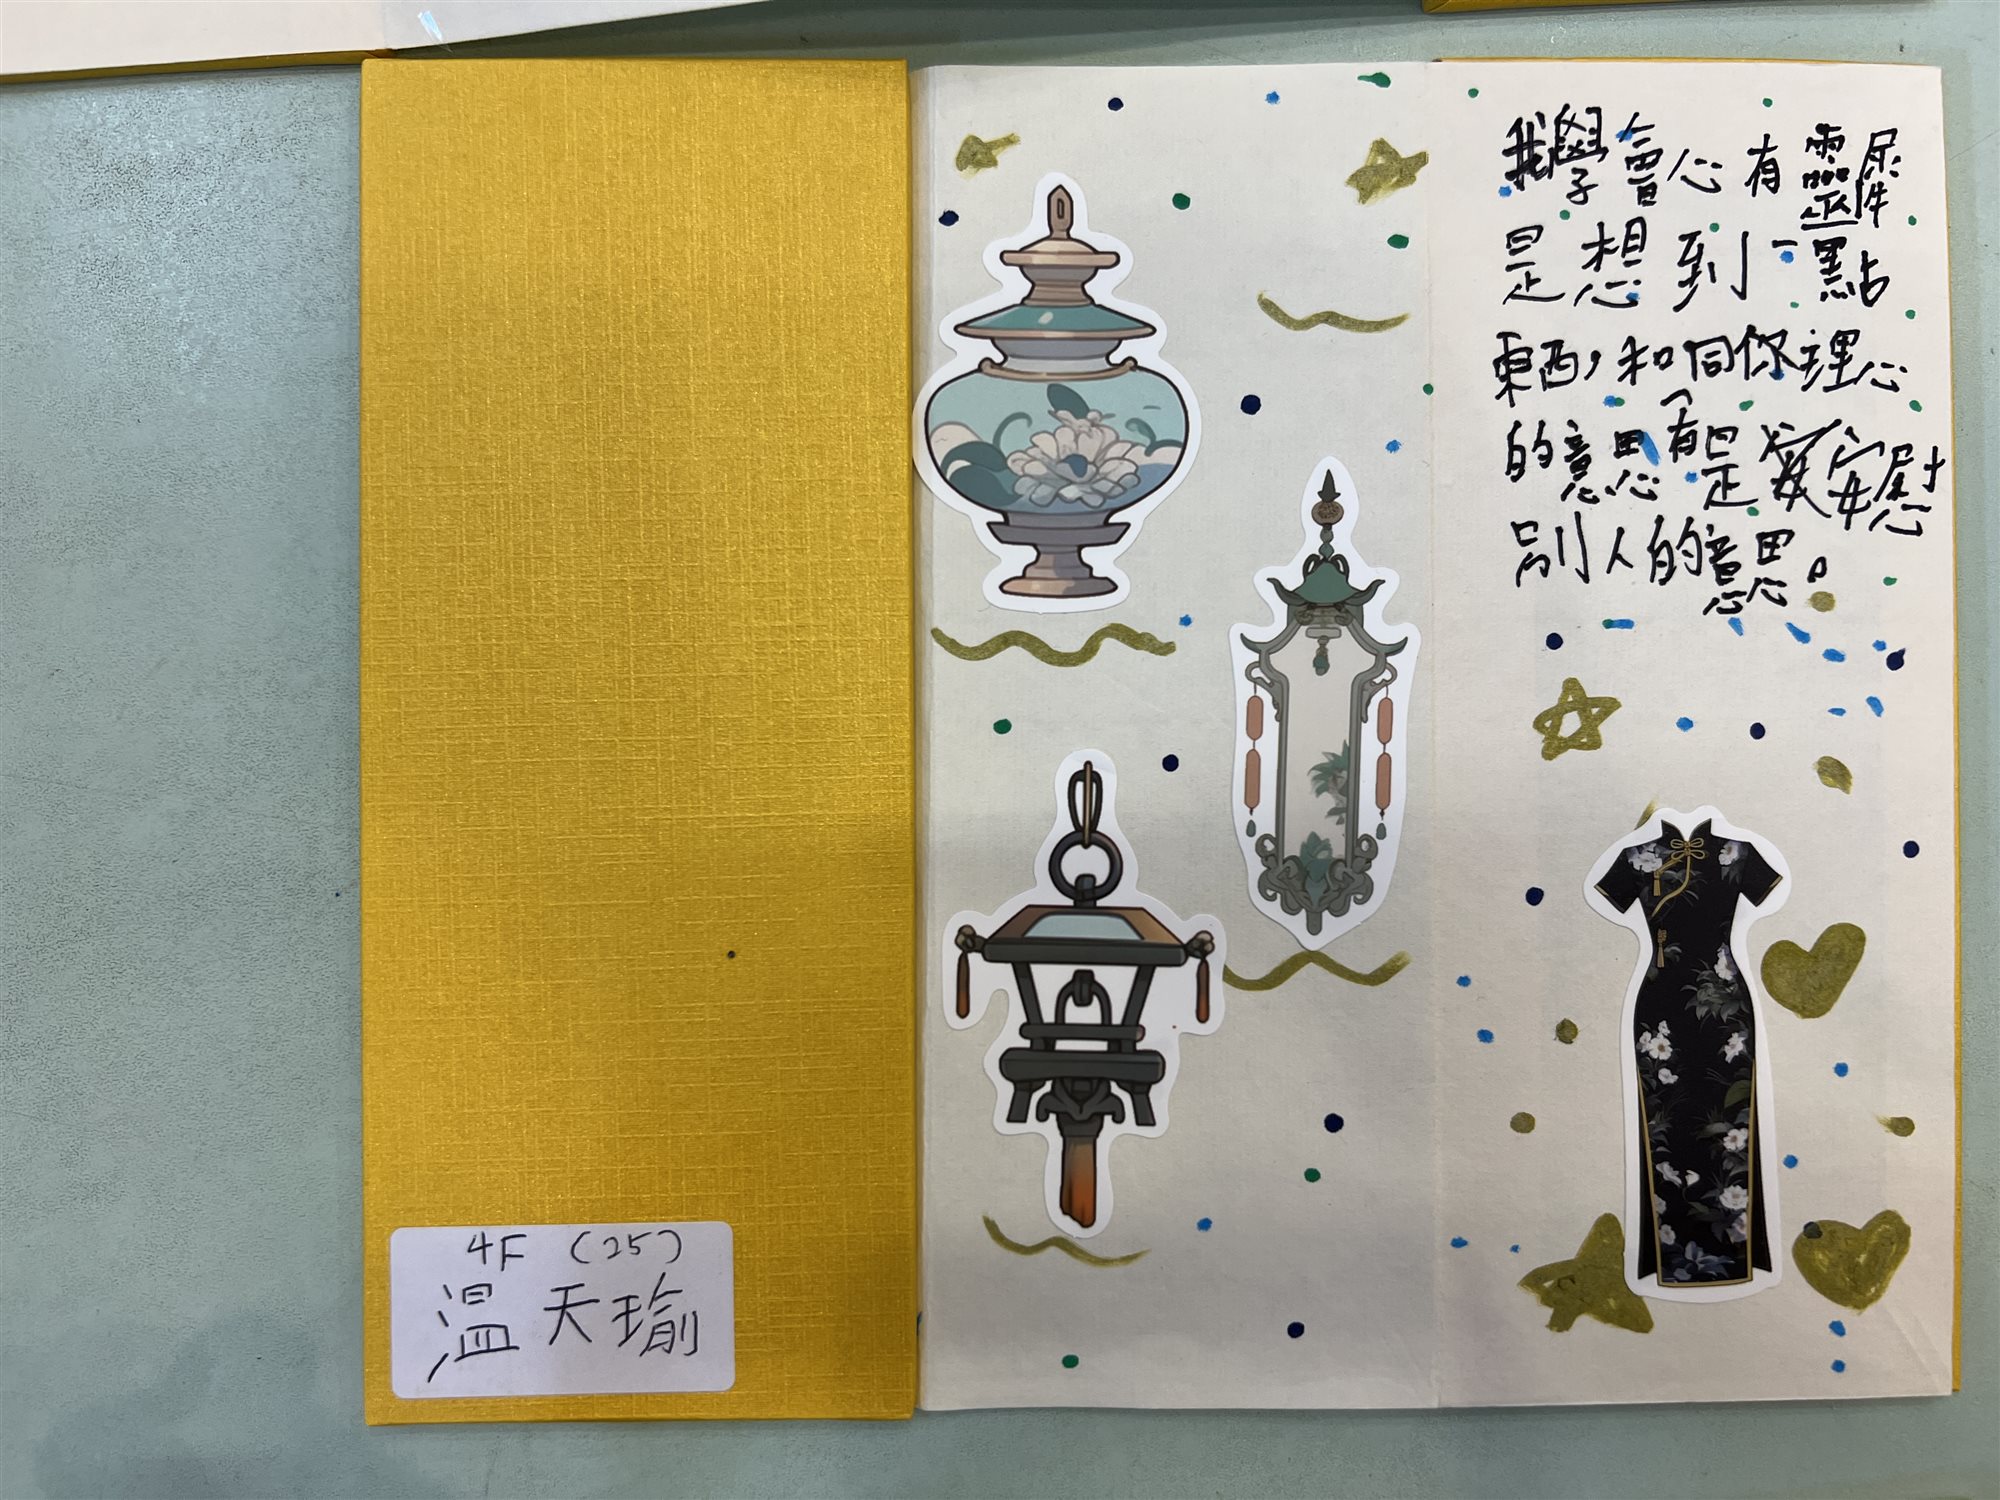 4F (25)
温天瑜
我學會心有靈犀
是想到一點
東西，和同你理心
的意思，有是安慰
別人的意思。